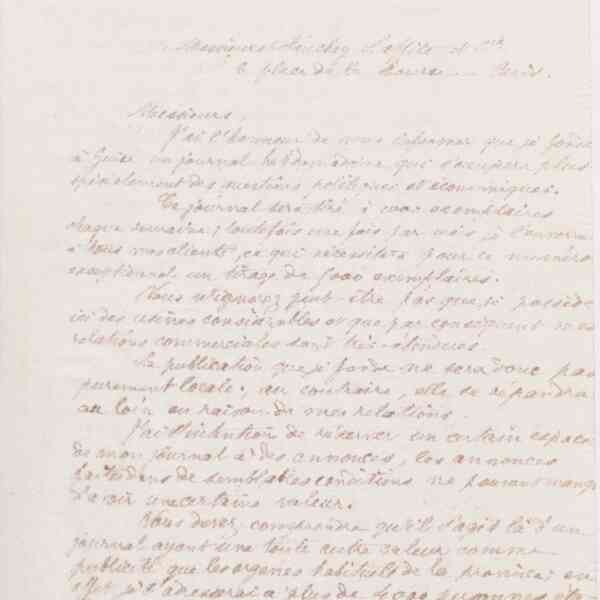 Messieurs Laffite et Cie
8 place de la Bourse Paris.
Messieurs,
J'ai l'honneur de vous informer que je fonde
à Guise un journal hebdomadaire qui s'occupera plus
spécialement des questions politiques et économiques.
Ce journal sera tiré à exemplaires
chaque semaine; toutefois une fois par mois je l'enverrai
à tous mes clients, ce qui nécessitera pour ce numéro
exceptionnel un tirage de 5000 exemplaires.
Vous n'ignorez peut-être pas que je possède
ici des usines considérables et que par conséquent mes
relations commerciales sont très-étendues.
La publication que je fonde ne sera donc pas
purement locale; au contraire, elle se répandra
au loin en raison de mes relations.
J'ai l'intention de réserver un certain espace
de mon journal à des annonces, les annonces
faites dans de semblables conditions ne pouvant manquer
d'avoir une certaine valeur.
Vous devez comprendre qu'il s'agit là d'un
journal ayant une toute autre valeur comme
publicité que les organes habituels de la province; en
effet je m'adresserai à plus de 4000 personnes